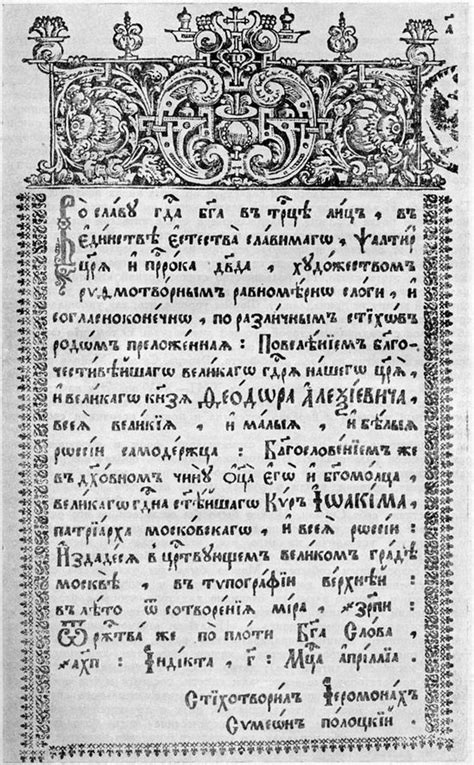 Во славу гда бга въ трцѣ лицъ, въ
единствѣ естества славимагѡ, Ѱалтир
цря и пррока двда, художествомъ
риѳмотворнымъ равномѣрнѡ слоги, и
согласноконечнѡ, по различнымъ стіхѡвъ
родѡмъ преложенная: Повелѣніемъ благо-
честивѣйшагѡ великагѡ гдря нашегѡ цря,
и великагѡ кнзя Ѳеодѡра Алеѯіевича,
всея великія, и малыя, и бѣлыя
рѡссіи самодержца: Благословеніемъ же
въ дхѡвномъ чину оца егѡ и бгомолца,
великагѡ гдна стѣйшагѡ Кѵръ Іѡакіма,
патріарха московскагѡ, и всея рѡссіи:
Издадеся в црствующемъ великомъ градѣ
москвѣ, въ типографіи верхнѣй:
въ лѣто ѿ сотворенія міра, ҂зрпи:
Ѿ ржтва же по плоти Бга Слова,
҂ахп: Індікта, г: Мца апріллія.
Стіхотворилъ Іеромонахъ
Сѵмеѡнъ полоцкій.